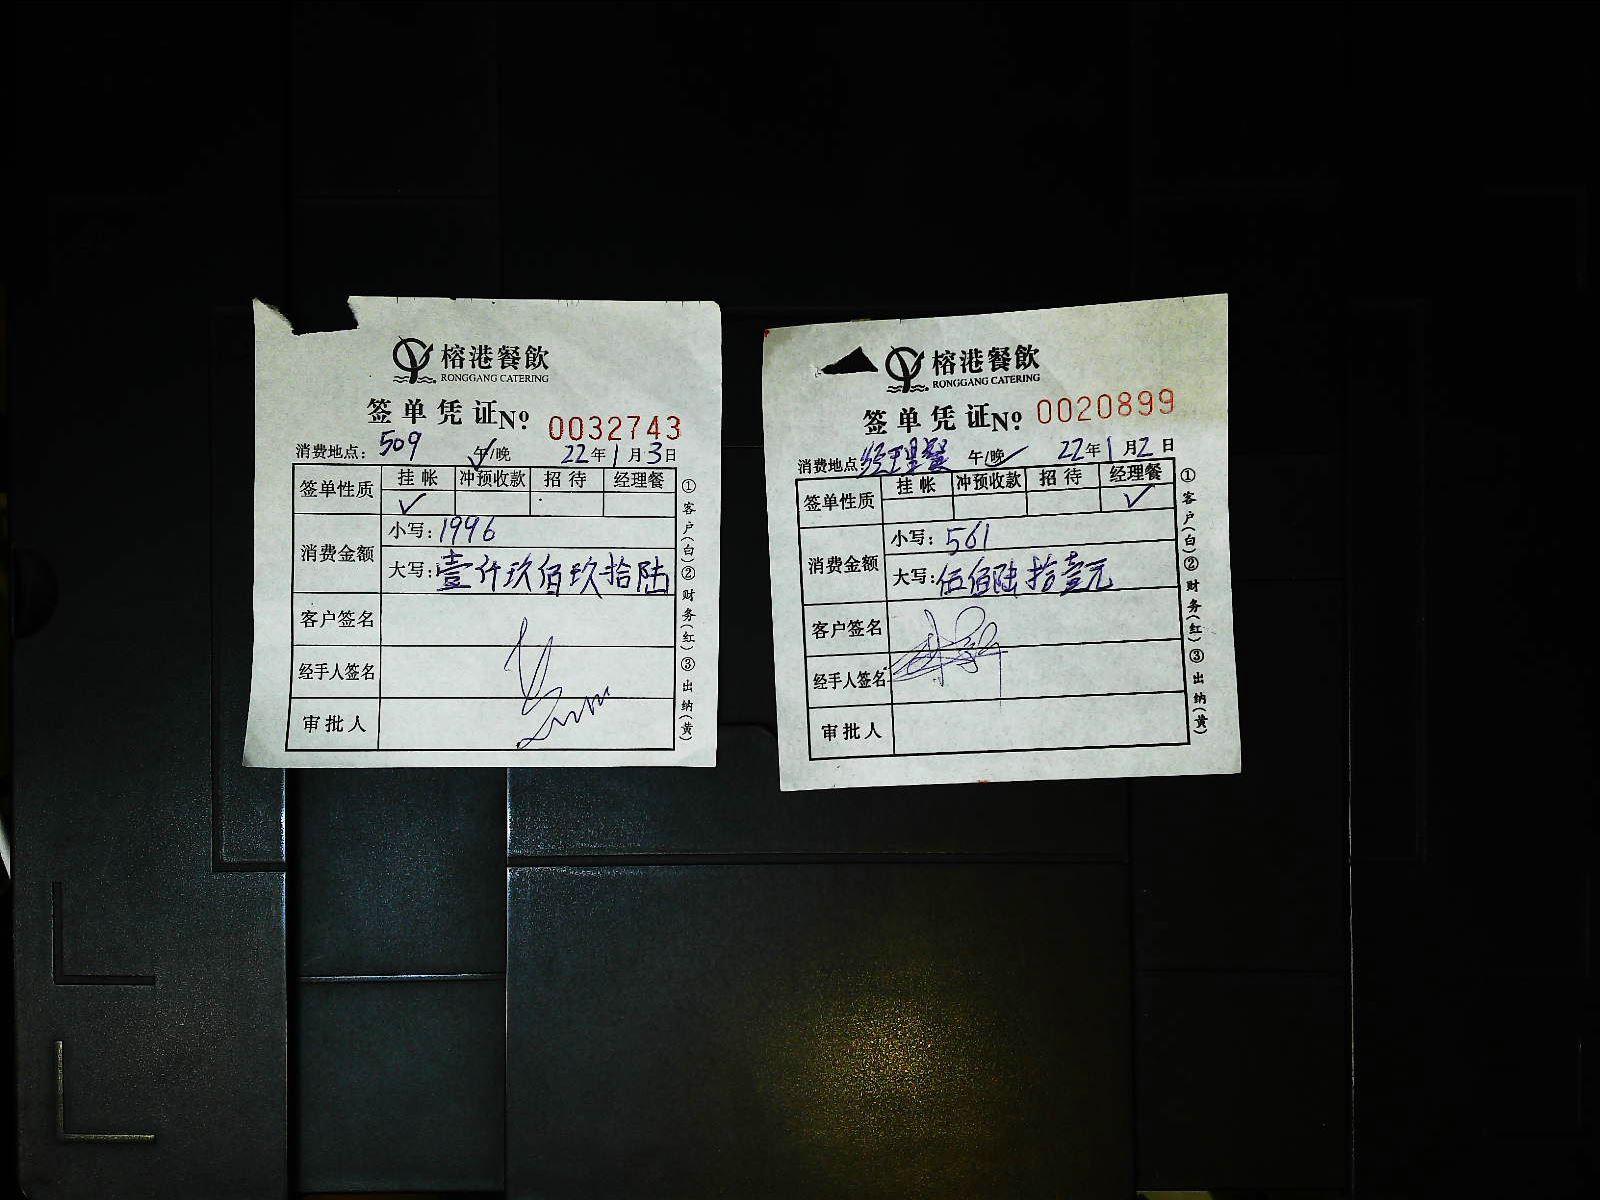 榕港餐飲
RONGGANG CATERING
签单凭证№ 0032743
消费地点：509 午/晚 22年1月3日
签单性质 挂帐 冲预收款 招待 经理餐
✓
消费金额 小写：1996
大写：壹仟玖佰玖拾陆
客户签名
经手人签名
审批人
①客户(白)②财务(红)③出纳(黄)
榕港餐飲
RONGGANG CATERING
签单凭证№ 0020899
消费地点 经理餐 午/晚 22年1月2日
签单性质 挂帐 冲预收款 招待 经理餐
✓
消费金额 小写：561
大写：伍佰陆拾壹元
客户签名
经手人签名
审批人
①客户(白)②财务(红)③出纳(黄)